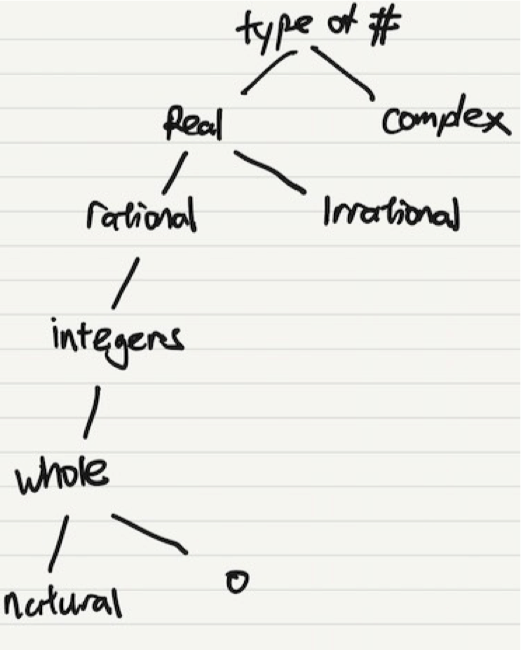 type of #
Real
complex
rational
Irrational
integers
whole
natural
0